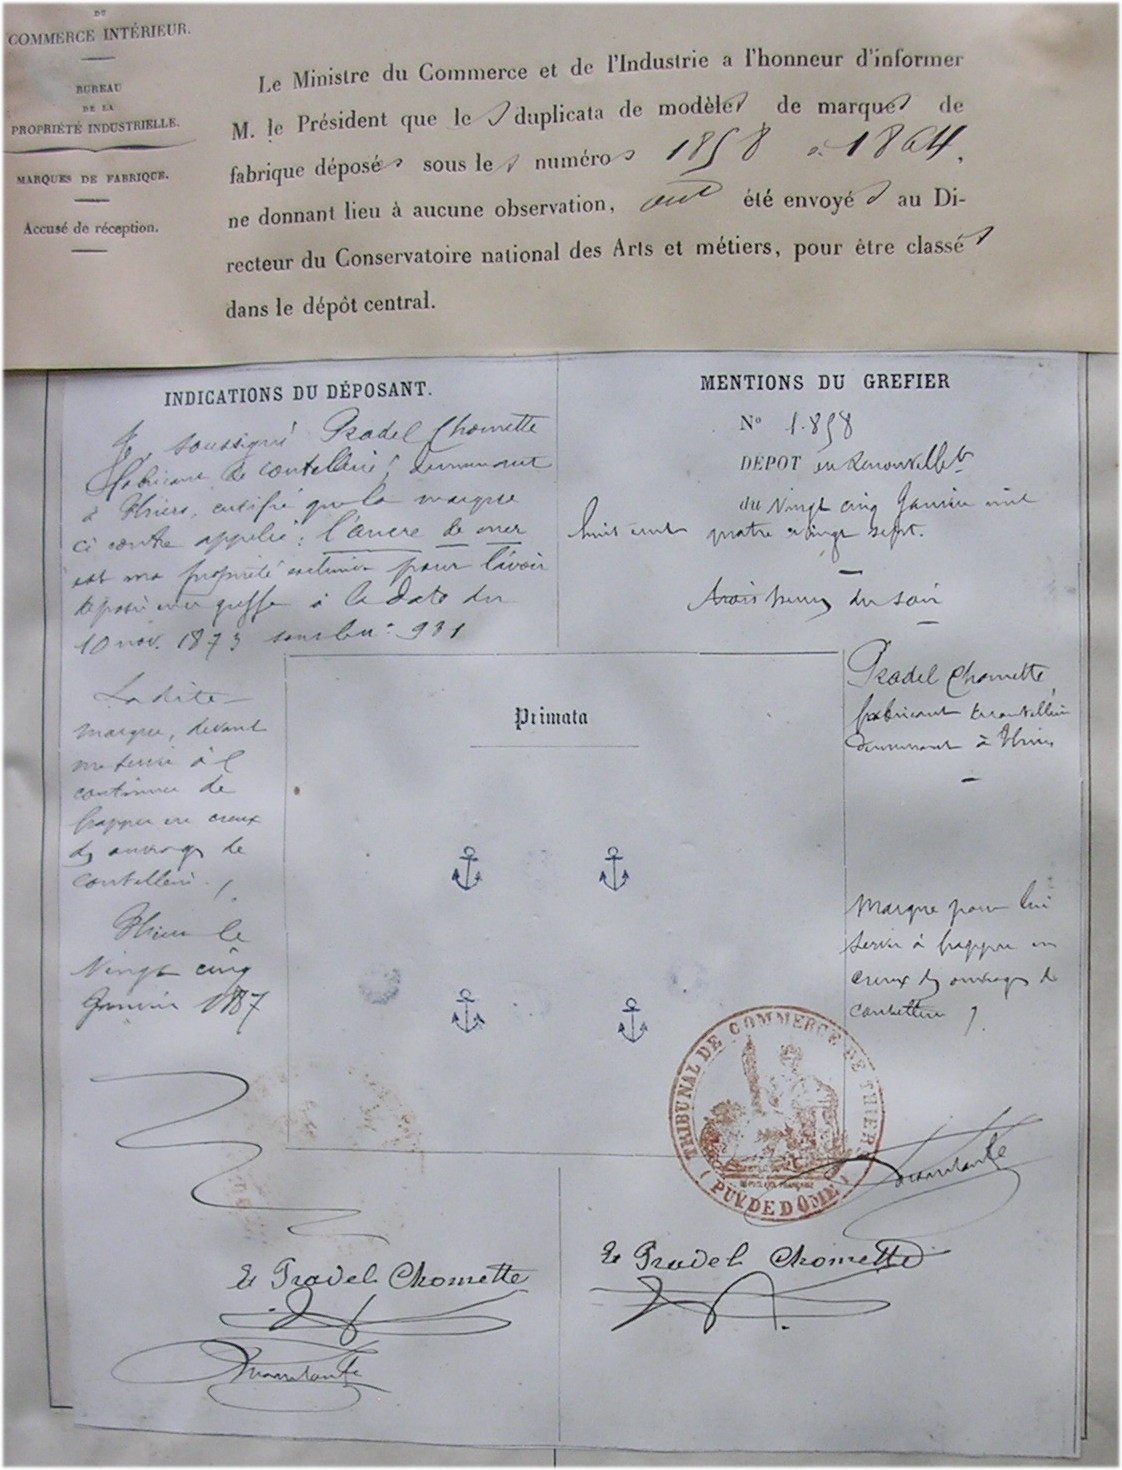 DU
COMMERCE INTÉRIEUR.
BUREAU
DE LA
PROPRIÉTÉ INDUSTRIELLE.
MARQUES DE FABRIQUE.
Accusé de réception.
Le Ministre du Commerce et de l'Industrie a l'honneur d'informer
M. le Président que les duplicata de modèles de marques de
fabrique déposés sous les numéros 1858 à 1864,
ne donnant lieu à aucune observation, ont été envoyés au Di-
recteur du Conservatoire national des Arts et métiers, pour être classés
dans le dépôt central.
INDICATIONS DU DÉPOSANT.
Je soussigné Pradel Chomette
fabricant de coutellerie, demeurant
à Thiers, certifie que la marque
ci contre appelée: l'ancre de mer
est ma propriété exclusive pour l'avoir
déposée au greffe à la date du
10 nov. 1873 sous le n° 931
La dite
marque, devant
me servir à
continuer de
frapper en creux
des ouvrages de
coutellerie.
Thiers le
Vingt cinq
Janvier 1887
MENTIONS DU GREFIER
N° 1.858
DEPOT en Renouvellet
du Vingt cinq Janvier mil
huit cent quatre vingt sept.
trois heures du soir
Primata
Pradel Chomette,
fabricant de coutellerie
demeurant à Thiers
Marque pour lui
servir à frapper en
creux des ouvrages de
coutellerie
TRIBUNAL DE COMMERCE DE THIERS
(PUY DE DOME)
RÉPUBLIQUE FRANÇAISE
Et Pradel Chomette
Et Pradel Chomette